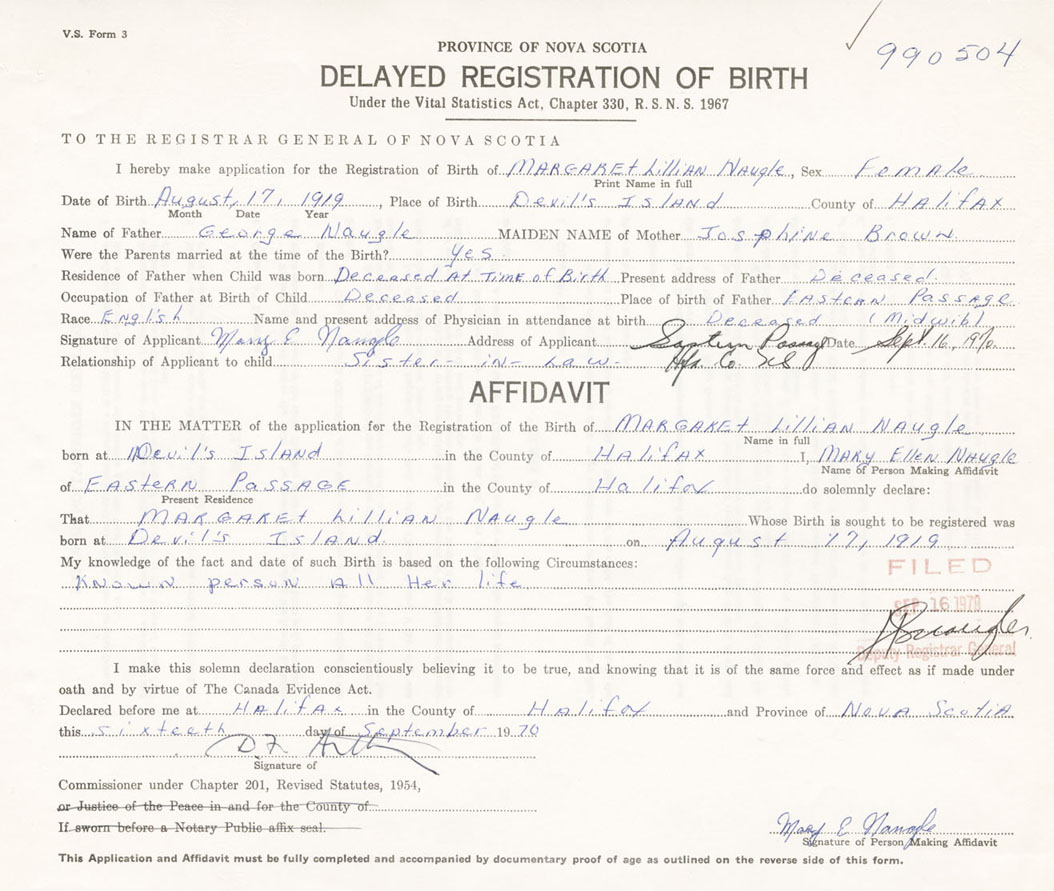 V.S. Form 3
990504
PROVINCE OF NOVA SCOTIA
DELAYED REGISTRATION OF BIRTH
Under the Vital Statistics Act, Chapter 330, R. S. N. S. 1967
TO THE REGISTRAR GENERAL OF NOVA SCOTIA
I hereby make application for the Registration of Birth of MARGARET Lillian Naugle, Sex Female
Print Name in full
Date of Birth August, 17, 1919, Place of Birth Devil's Island County of HALIFAX
Month Date Year
Name of Father George Naugle MAIDEN NAME of Mother Josphine Brown
Were the Parents married at the time of the Birth? Yes
Residence of Father when Child was born Deceased At Time of Birth Present address of Father Deceased
Occupation of Father at Birth of Child Deceased Place of birth of Father EASTERN Passage
Race English Name and present address of Physician in attendance at birth Deceased (Midwib)
Signature of Applicant Mary E Naugle Address of Applicant Eastern Passage Date Sept. 16, 1970
Hfx Co NS
Relationship of Applicant to child Sister-in-Law
AFFIDAVIT
IN THE MATTER of the application for the Registration of the Birth of MARGARET Lillian Naugle
Name in full
born at Devil's Island in the County of HALIFAX I, MARY Ellen Naugle
Name of Person Making Affidavit
of EASTERN PASSAGE in the County of Halifax do solemnly declare:
Present Residence
That MARGARET Lillian Naugle Whose Birth is sought to be registered was
born at Devil's Island on August 17, 1919
My knowledge of the fact and date of such Birth is based on the following Circumstances:
Known person All Her life
FILED
SEP 16 1970
Deputy Registrar General
I make this solemn declaration conscientiously believing it to be true, and knowing that it is of the same force and effect as if made under
oath and by virtue of The Canada Evidence Act.
Declared before me at HALIFAX in the County of HALIFAX and Province of NOVA Scotia
this sixteeth day of September 1970
Signature of
Commissioner under Chapter 201, Revised Statutes, 1954,
or Justice of the Peace in and for the County of
If sworn before a Notary Public affix seal.
Mary E Naugle
Signature of Person Making Affidavit
This Application and Affidavit must be fully completed and accompanied by documentary proof of age as outlined on the reverse side of this form.